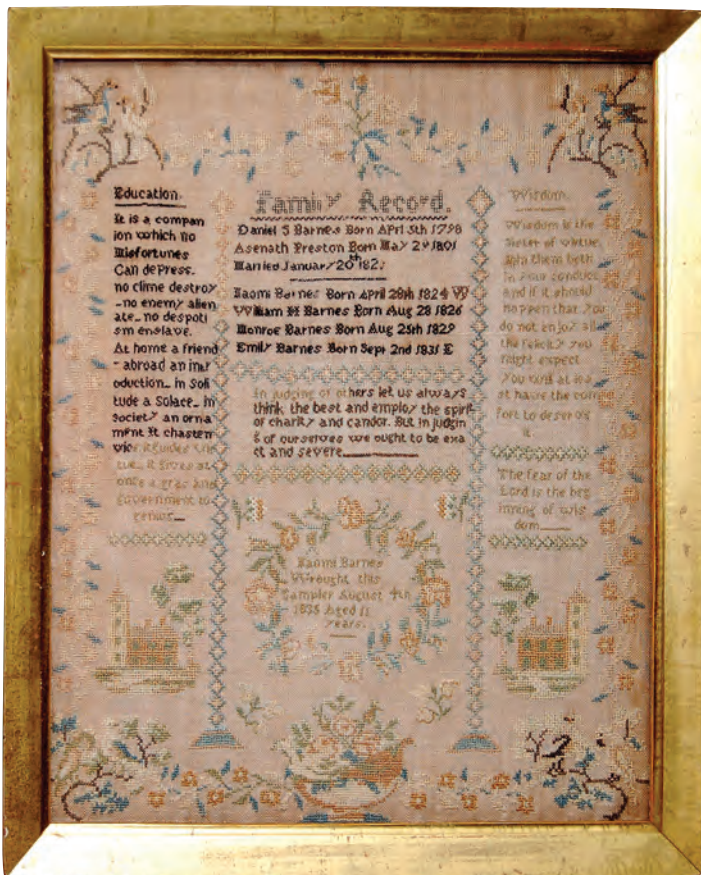 Education.
It is a compan
ion which no
Misfortunes
Can depress.
no clime destroy
- no enemy alien
ate - no despoti
sm enslave.
At home a friend
- abroad an intr
oduction - in Soli
tude a Solace - in
Society an orna
ment It chasten
vice it guides vir
tue - it gives at
once a grac and
government to
genius -
Family Record.
Daniel S Barnes Born Apri 5th 1798
Asenath Preston Born May 29 1801
Married January 20th 182
Naomi Barnes Born April 28th 1824 W
William H Barnes Born Aug 28 1826
Monroe Barnes Born Aug 25th 1829
Emily Barnes Born Sept 2nd 1831 E
In judging of others let us always
think the best and employ the spirit
of charity and candor. But in judgin
g of ourselves we ought to be exa
ct and severe
Naomi Barnes
Wrought this
Sampler August 4th
1835 Aged 11
years.
Wisdom.
Wisdom is the
Sister of virtue
Join them both
in your conduct
And if it should
happen that you
do not enjoy all
the felicity you
might expect
You will at lea
st have the com
fort to deserve
it.
The fear of the
Lord is the beg
inning of wis
dom